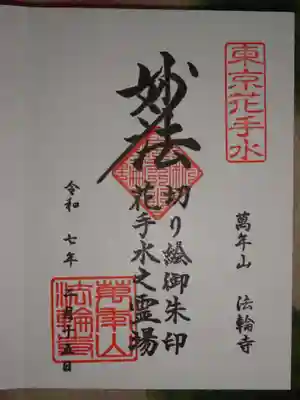 東京花手水
萬年山 法輪寺
妙法
切り絵御朱印
花手水之霊場
令和 七年 二月十五日
萬年山
法輪寺